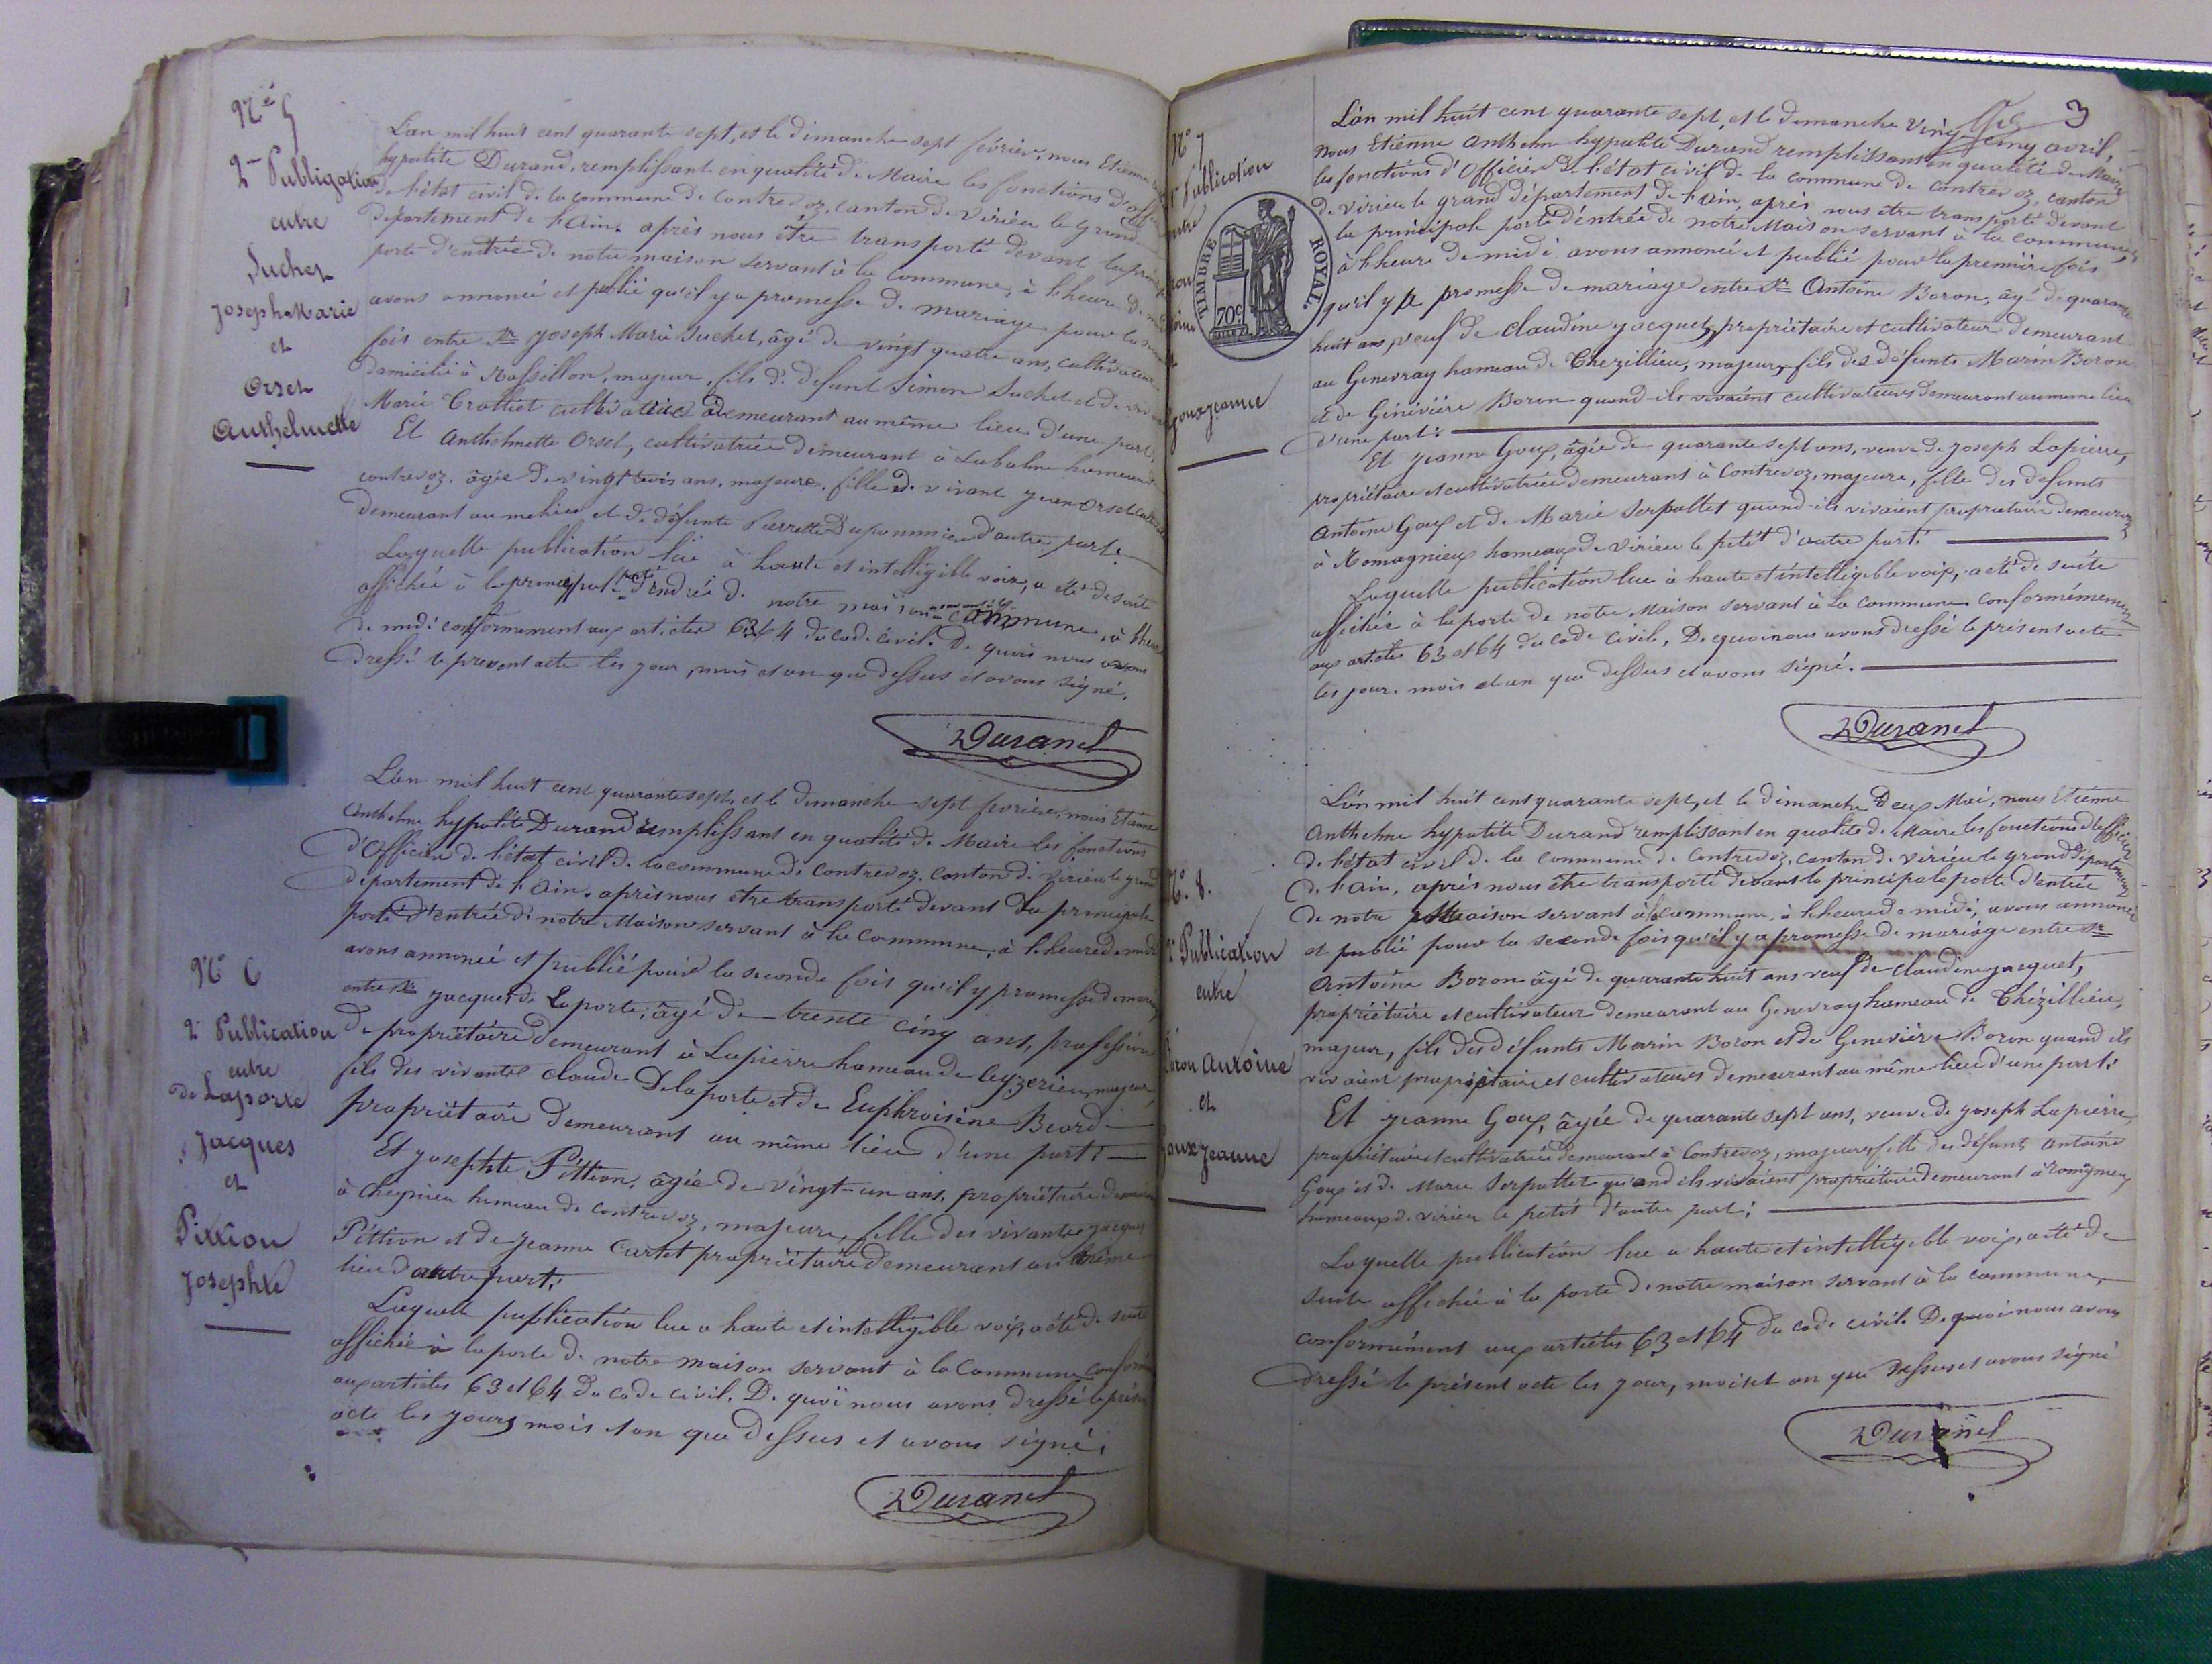 N° 5
2me Publication
entre
Suchet
Joseph Marie
et
Orset
Anthelmette
L'an mil huit cent quarante sept, et le dimanche sept février, nous Etienne
hypolite Durand, remplissant en qualité de Maire les fonctions d'offi
de l'état civil de la commune de Contrevoz, canton de Virieu le grand
département de l'Ain. après nous être transporté devant la prin
porte d'entrée de notre maison servant à la commune, à l'heure de midi
avons annoncé et publié qu'il y a promesse de mariage pour la
fois entre Sr Joseph Marie Suchet, âgé de vingt quatre ans, cultivateur,
domicilié à Rossillon, majeur, fils de défunt Simon Suchet et de
Marie Trottet cultivatrice demeurant au même lieu d'une part.
Et Anthelmette Orset, cultivatrice demeurant à hameau de
contrevoz. âgée de vingt trois ans, majeure, fille de vivant Jean Orset
demeurant au lieu et de défunte Pierrette d'autre part.
Laquelle publication lue à haute et intelligible voix, a été de suite
affichée à la principale porte d'entrée de notre maison commune, à l'heure
de midi conformément aux articles 63 64 du code civil. De quoi nous avons
dressé le present acte les jour, mois et an que dessus et avons signé.
Durand
N° 6
2e Publication
entre
de Laporte
Jacques
et
Pittion
Josephte
L'an mil huit cent quarante sept, et le dimanche sept fevrier, nous Etienne
Anthelme hypolite Durand remplissant en qualité de Maire les fonctions
d'Officier de l'état civil de la commune de Contrevoz. Canton de Virieu le grand
département de l'Ain. après nous être transporté devant la principale
porte d'entrée de notre Maison servant à la Commune, à l'heure de midi
avons annoncé et publié pour la seconde fois qu'il y promesse de mariage
entre Sr Jacques de Laporte, âgé de trente cinq ans, profession
de propriétaire demeurant à Lapierre hameau de Ceyzerieu, majeur,
fils des vivants Claude Delaporte et de Euphroisine Béard
propriétaire demeurant au même lieu d'une part:
Et Josephte Pittion, âgée de vingt-un ans, propriétaire demeurant
à Cheignieu hameau de Contrevoz, majeure, fille des vivants Jacques
Pittion et de Jeanne Cartet propriétaire demeurant au même
lieu d'autre part;
Laquelle publication lue a haute et intelligible voix, a été de suite
affichée à la porte de notre maison servant à la Commune conformé
aux articles 63 et 64 du code civil. De quoi nous avons dressé le présent
acte les jours mois et an que dessus et avons signé.
Durand
3
N° 7
Publication
entre
Goux Jeanne
TIMBRE ROYAL
70c
L'an mil huit cent quarante sept, et le dimanche vingt cinq avril,
nous Etienne anthelme hypolite Durand remplissant en qualité de Maire
les fonctions d'Officier de l'état civil de la commune de Contrevoz, canton
de Virieu le grand département de l'ain, après nous être transporté devant
la principale porte d'entrée de notre Maison servant à la commune,
à l'heure de midi avons annoncé et publié pour la première fois
qu'il y a promesse de mariage entre Sr Antoine Boron, âgé de quarante
huit ans, veuf de Claudine Jacquet, propriétaire et cultivateur demeurant
au Genevray hameau de Thezillieu, majeur, fils des défunts Marin Boron
et de Géniviève Boron quand-ils vivaient cultivateurs demeurant au même lieu
d'une part:
Et Jeanne Goux, âgée de quarante sept ans, veuve de Joseph Lapierre,
propriétaire et cultivatrice demeurant à Contrevoz, majeure, fille des défunts
Antoine Goux et de Marie Serpollet quand-ils vivaient propriétaire demeurant
à Romagnieu hameaux de Virieu le petit d'autre part:
Laquelle publication lue à haute et intelligible voix, a été de suite
affichée à la porte de notre Maison servant à la commune conformément
aux articles 63 et 64 du code civil, De quoi nous avons dressé le présent acte
les jour. mois et an que dessus et avons signé.
Durand
N°. 8.
2e Publication
entre
Boron Antoine
et
Goux Jeanne
L'an mil huit cent quarante sept, et le dimanche deux Mai, nous Etienne
Anthelme hypolite Durand remplissant en qualité de Maire les fonctions d'officier
de l'état civil de la commune de Contrevoz, canton de Virieu le grand département
de l'Ain, après nous être transporté devant la principale porte d'entrée
de notre Maison servant à la commune, à l'heure de midi, avons annoncé
et publié pour la seconde fois qu'il y a promesse de mariage entre Sr
Antoine Boron âgé de quarante huit ans veuf de Claudine Jacquet,
propriétaire et cultivateur demeurant au Genevray hameau de Thézillieu,
majeur, fils des défunts Marin Boron et de Geneviève Boron quand ils
vivaient propriétaire et cultivateurs demeurant au même lieu d'une part:
Et Jeanne Goux, âgée de quarante sept ans, veuve de Joseph Lapierre,
propriétaire et cultivatrice demeurant à Contrevoz, majeure, fille des défunts Antoine
Goux et de Marie Serpollet quand ils vivaient propriétaire demeurant à Romagnieu
hameaux de Virieu le petit d'autre part:
Laquelle publication lue a haute et intelligible voix, a été de
suite affichée à la porte de notre maison servant à la commune,
conformément aux articles 63 et 64 du code civil. De quoi nous avons
dressé le présent acte les jour, mois et an que dessus et avons signé
Durand